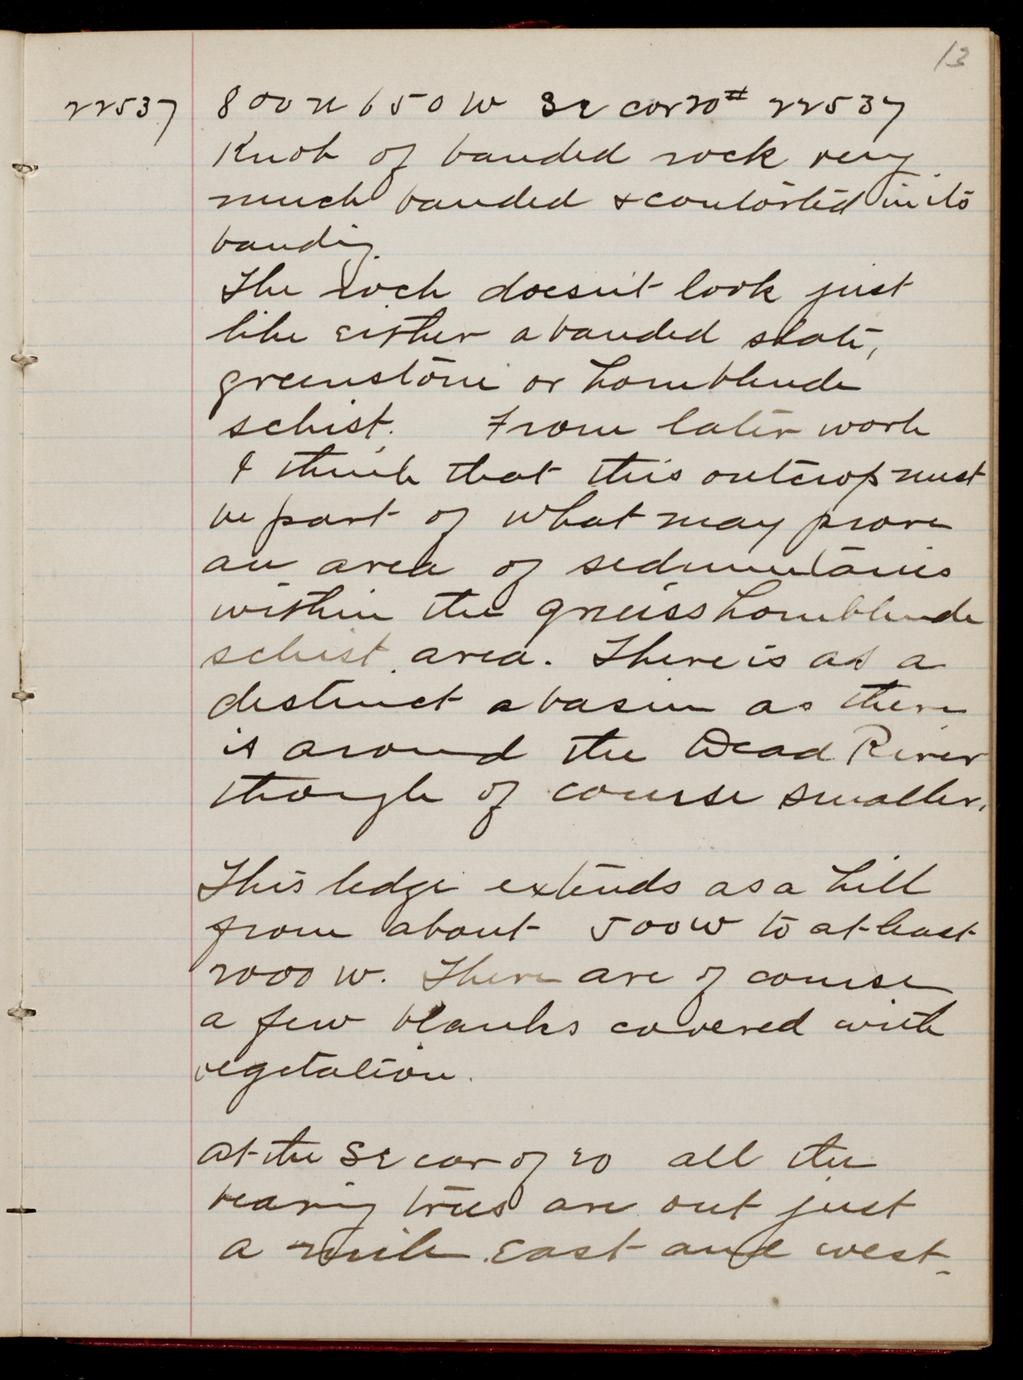 13
22537 800 N 650 W SE cor 20 # 22537
Knob of banded rock very
much banded & contorted in its
banding.
The rock doesn't look just
like either a banded slate,
greenstone or hornblende
schist. From later work
I think that this outcrop must
be part of what may prove
an area of sedimentaries
within the gneiss hornblende
schist area. There is as a
distinct a basin as there
is around the Dead River
though of course smaller.
This ledge extends as a hill
from about 500 W to at least
2000 W. There are of course
a few blanks covered with
vegetation.
At the SE cor of 20 all the
bearing trees are out just
a mile East and west.